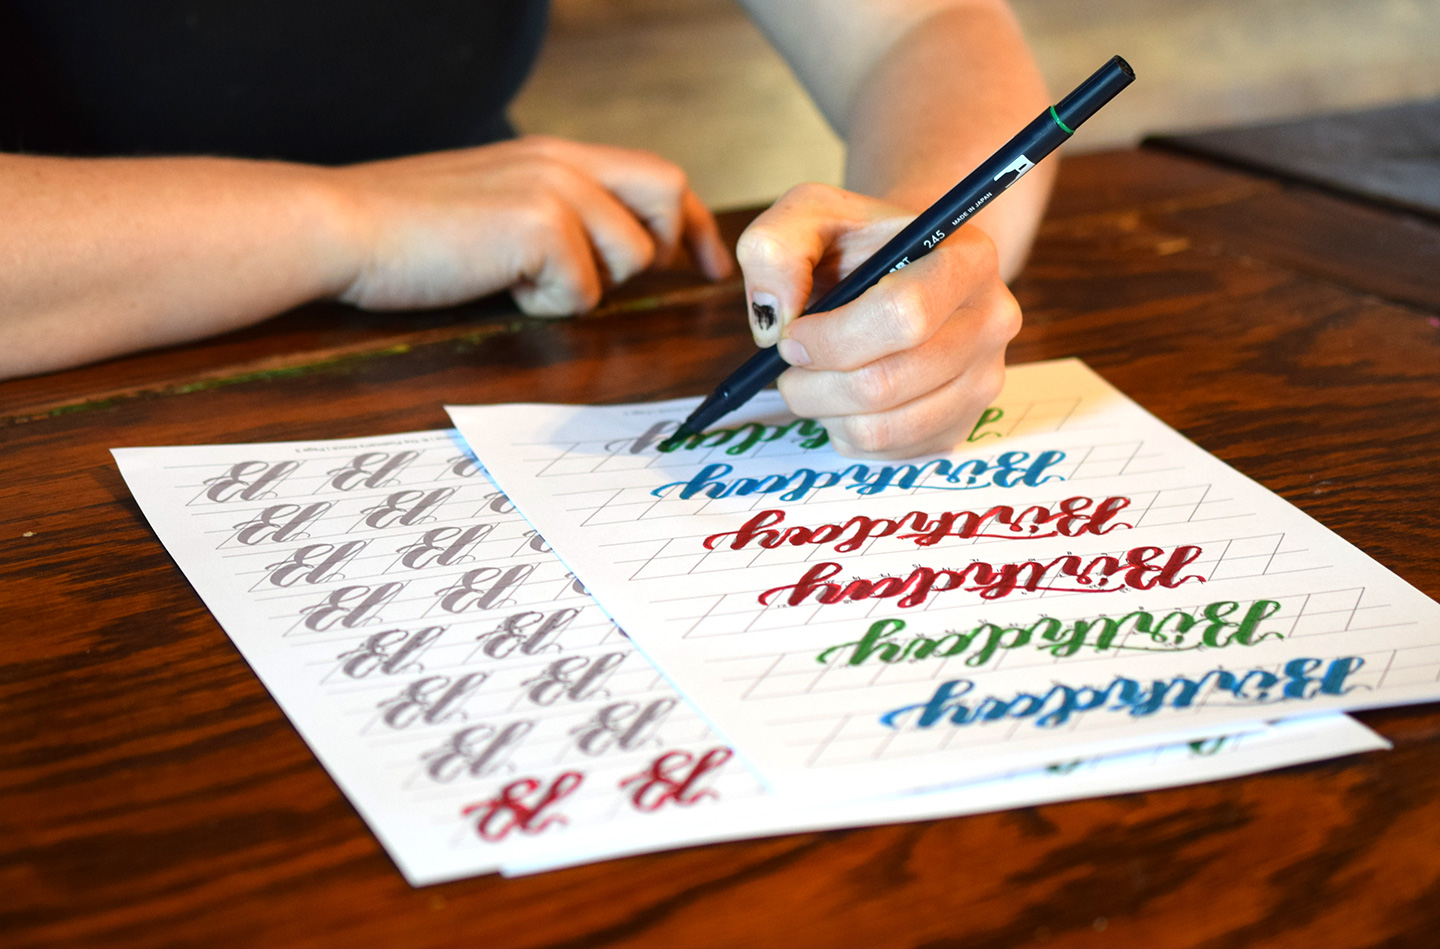 245 MADE IN JAPAN
Birthday
Birthday
Birthday
Birthday
Birthday
B B
B B
B B
B B
B B
B B
B B
B B